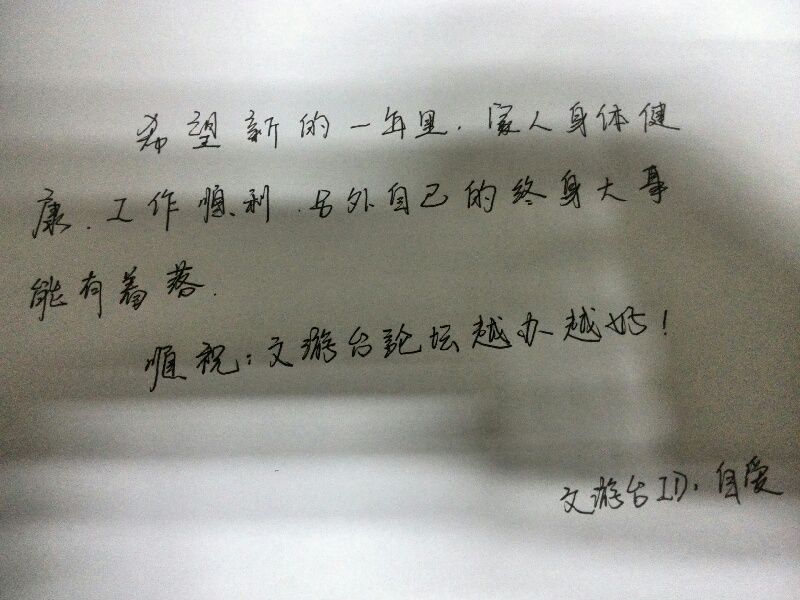 希望新的一年里.家人身体健
康.工作顺利.另外自己的终身大事
能有着落.
顺祝:文游台论坛越办越好!
文游台ID:自爱